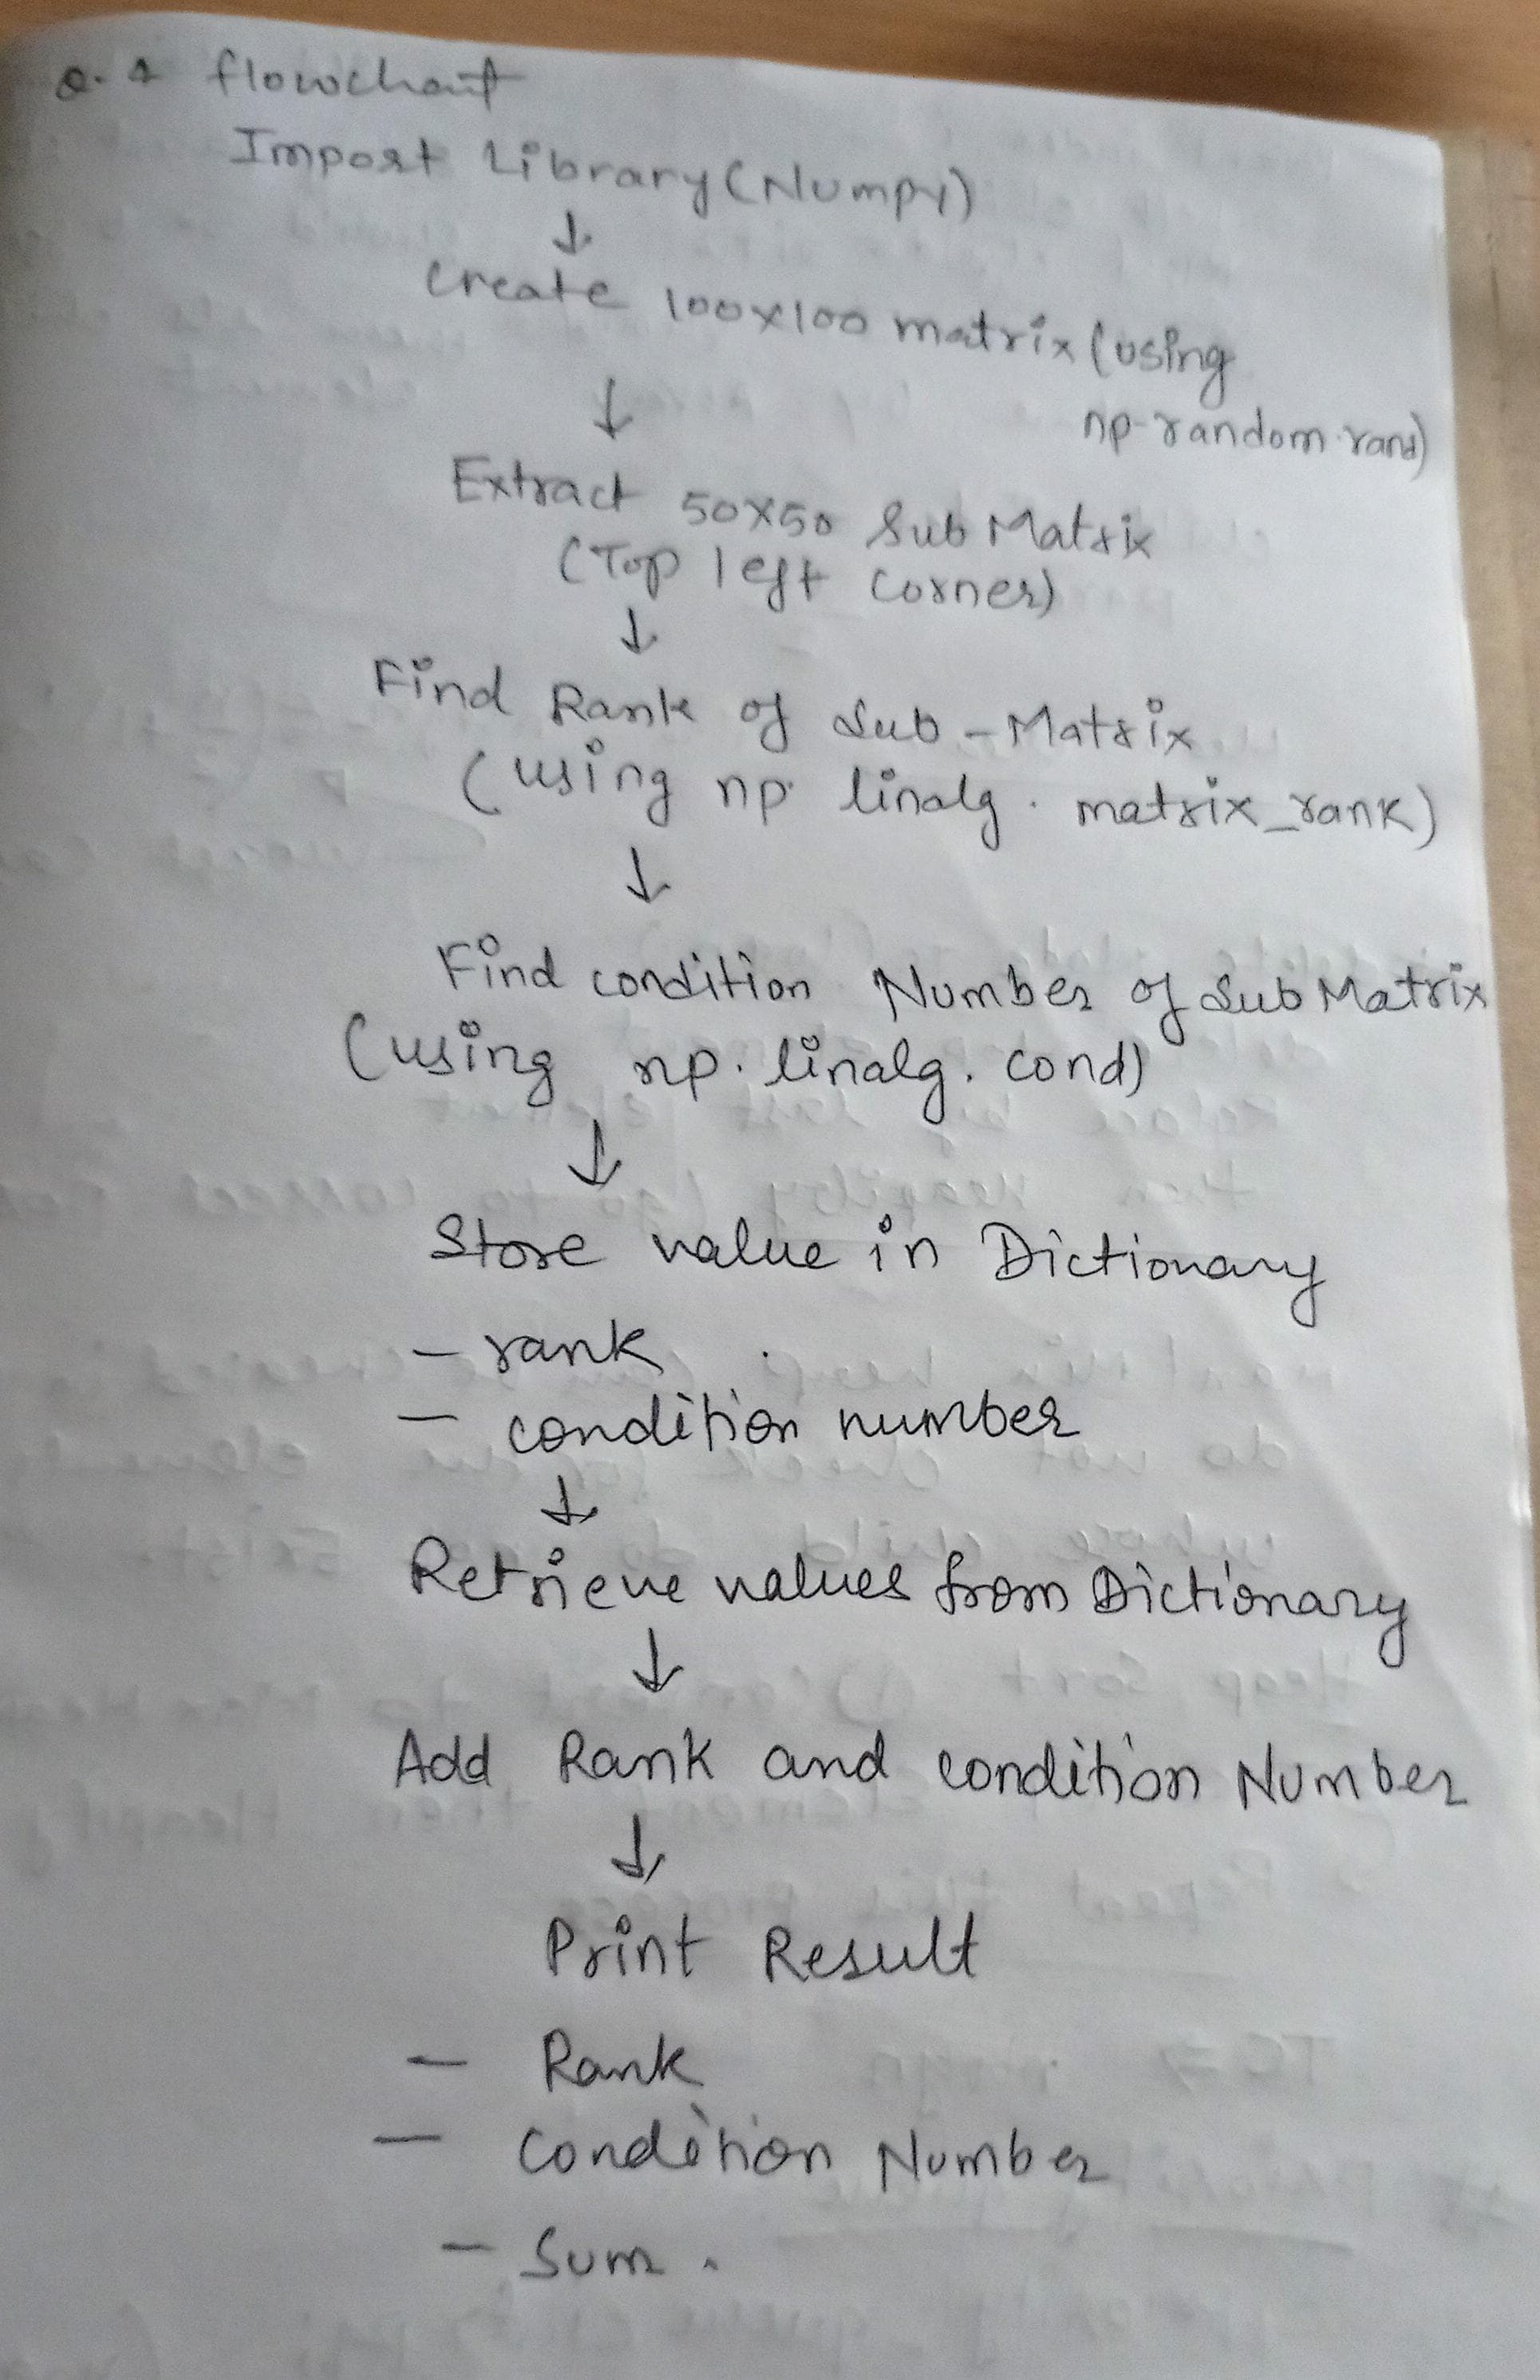 flowchart
Import Library (Numpy)
↓
Create 100x100 matrix (using
np.random.rand)
↓
Extract 50x50 Sub Matrix
(Top left Corner)
↓
Find Rank of Sub-Matrix
(using np. linalg. matrix_rank)
↓
Find condition Number of Sub Matrix
(using np. linalg. cond)
↓
Store value in Dictionary
- rank
- condition number
↓
Retrieve values from Dictionary
↓
Add Rank and condition Number
↓
Print Result
- Rank
- Condition Number
- Sum.